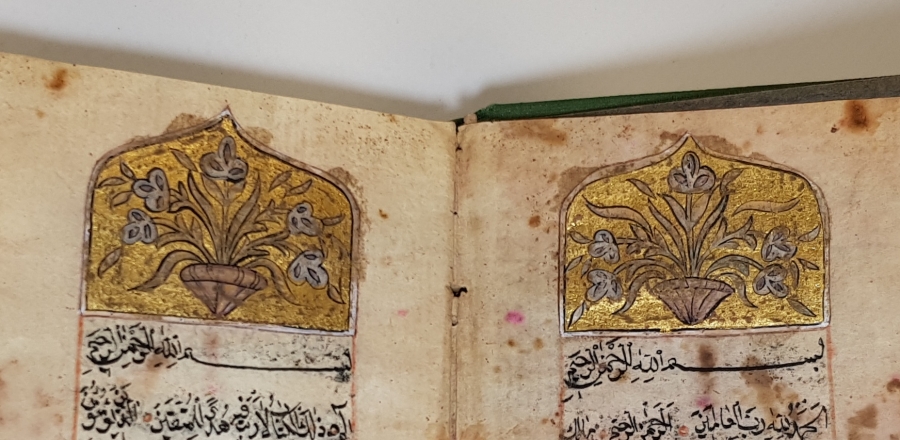 بسم الله الرحمن الرحيم
الحمد لله رب العالمين الرحمن الرحيم مالك
بسم الله الرحمن الرحيم
الم ذلك الكتاب لا ريب فيه هدى للمتقين